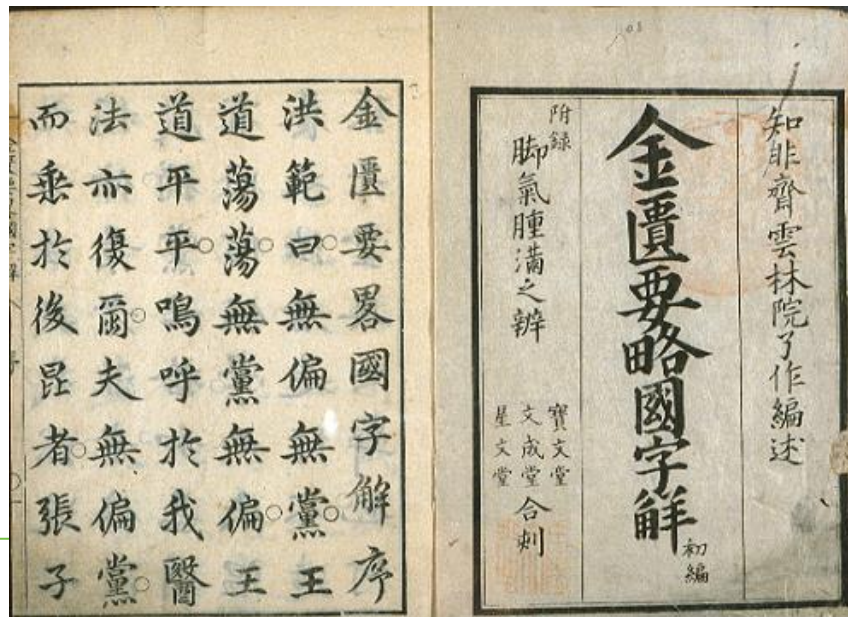 知非齊雲林院了作編述
金匱要略國字觧
初編
附録
脚氣腫満之辨
寶文堂
文成堂
星文堂
合刻
金匱要畧國字解序
洪範曰無偏無黨王
道蕩蕩無黨無偏王
道平平鳴呼於我醫
法亦復爾夫無偏黨
而垂於後昆者張子